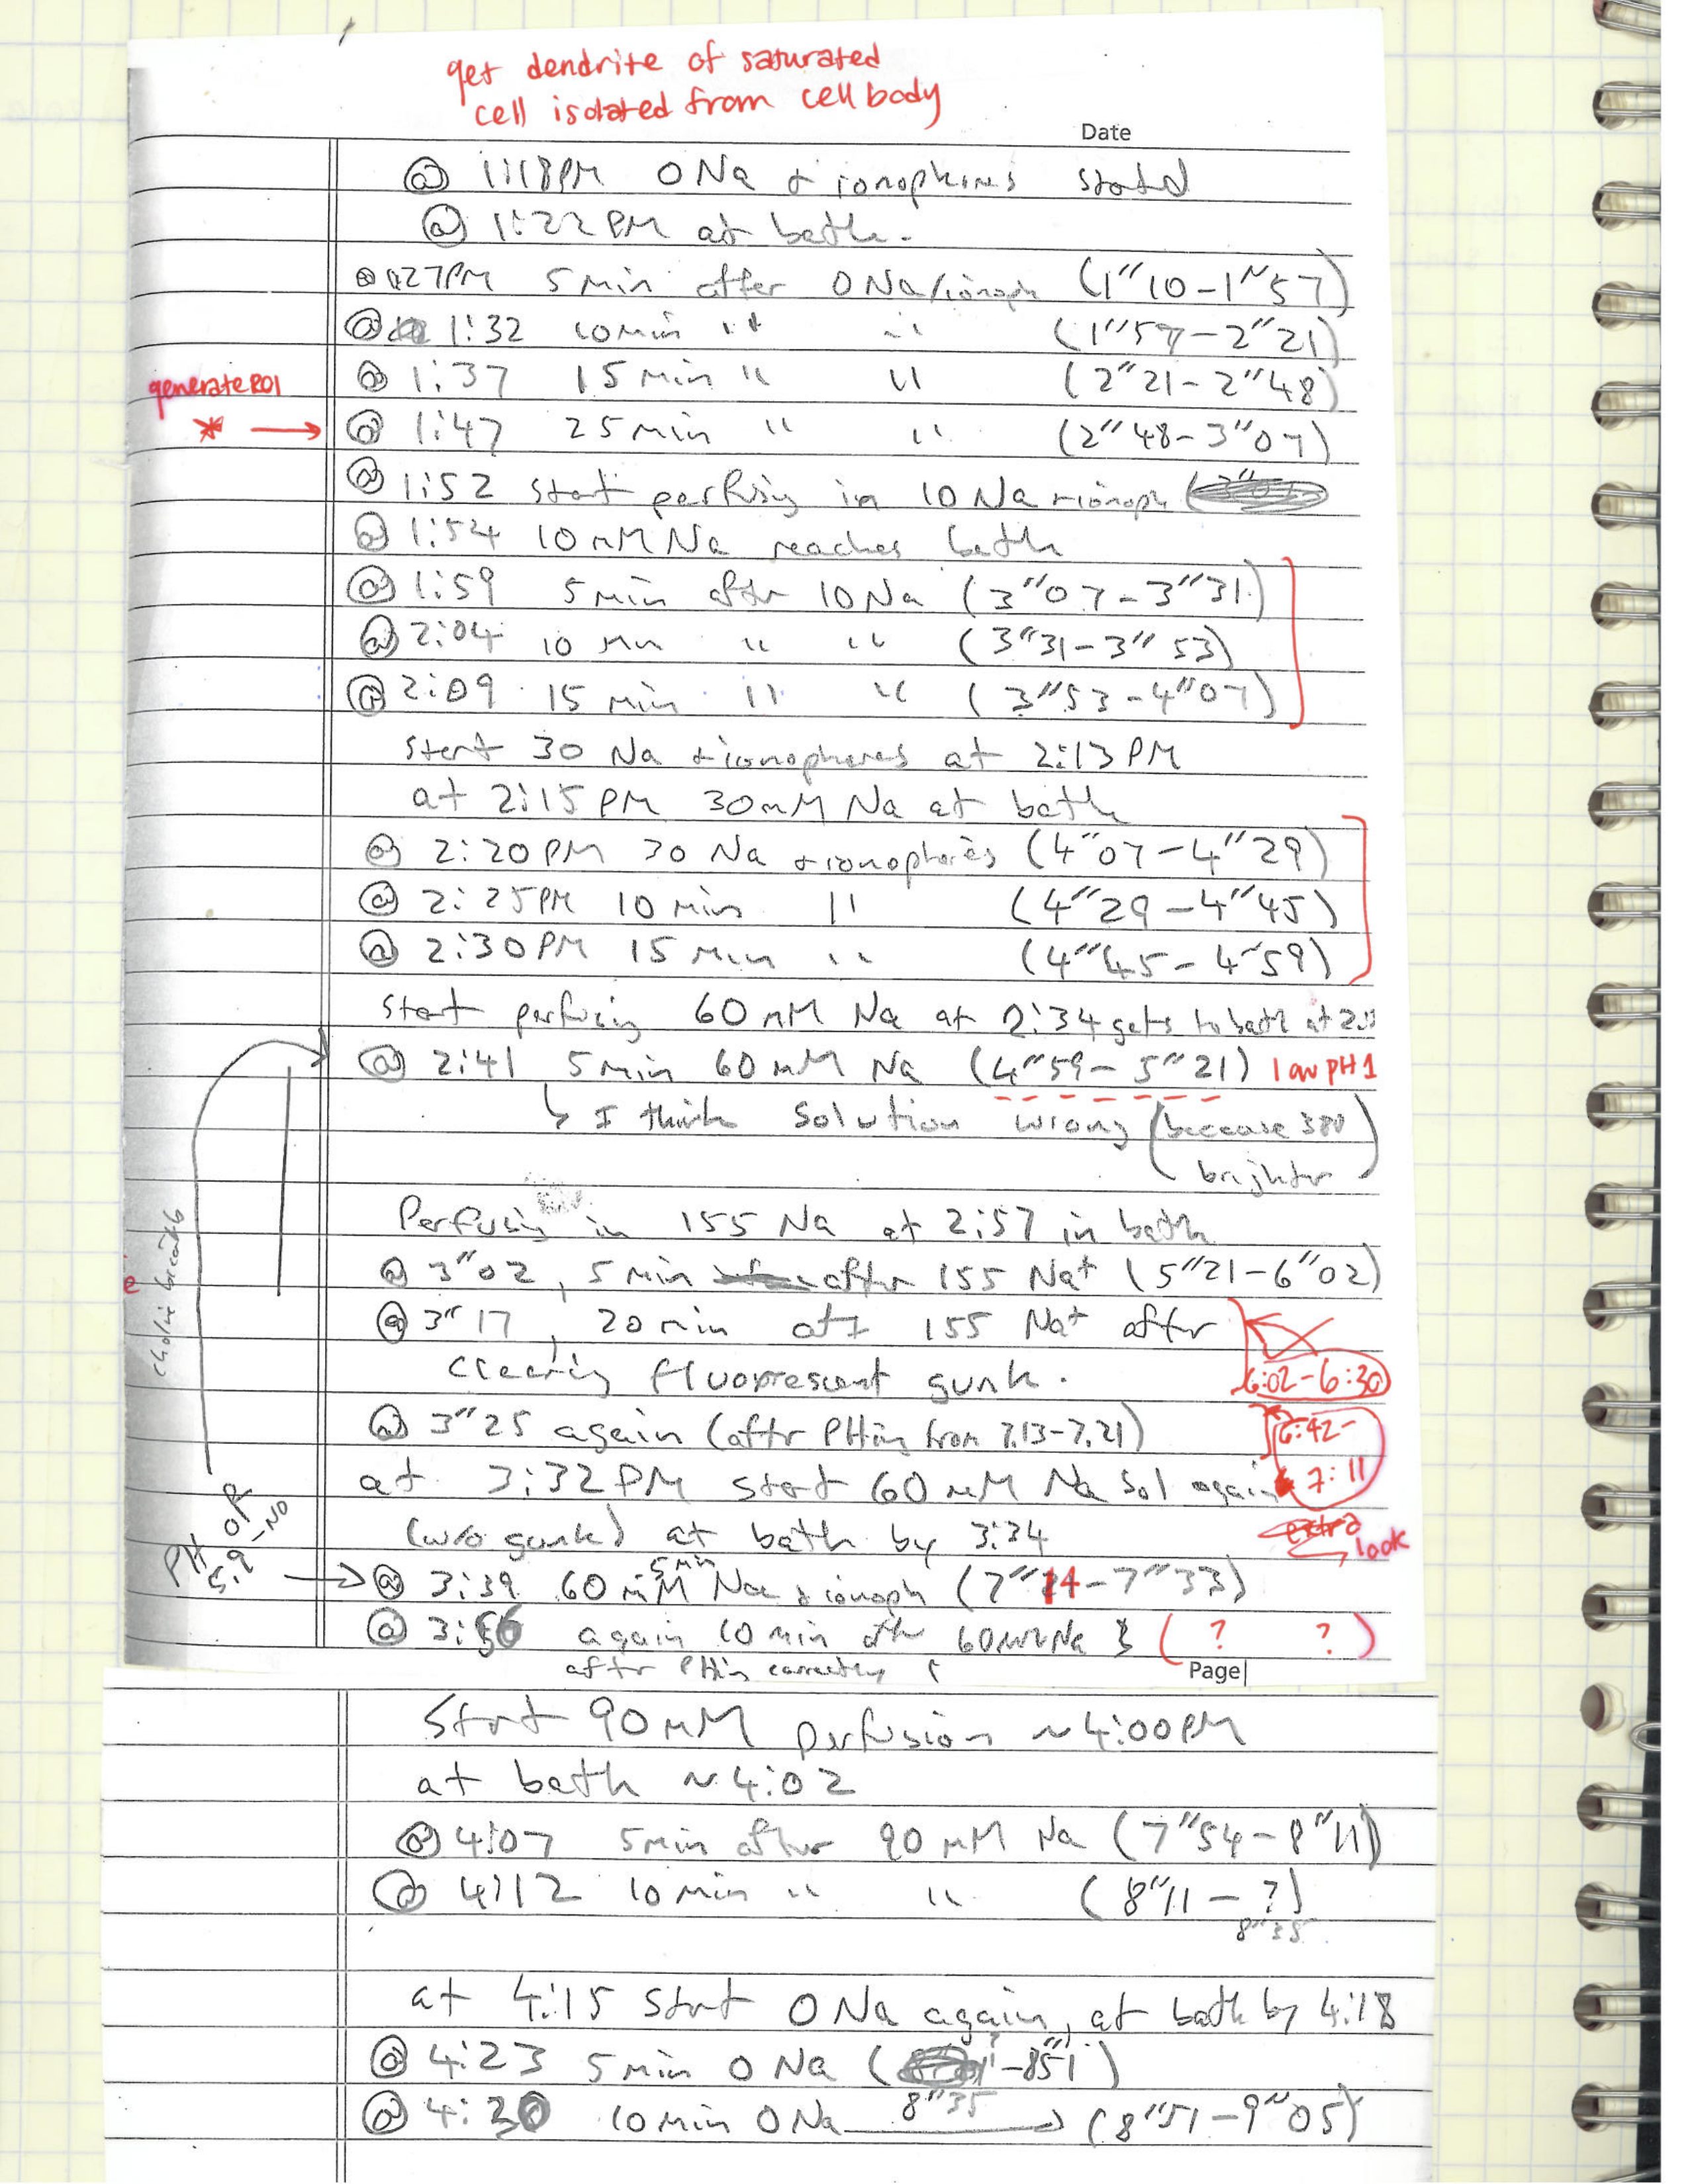 get dendrite of saturated
cell isolated from cell body
Date
@ 1:18PM 0 Na + ionophores started
@ 1:22 PM at bath.
@ 1:27PM 5 min after 0Na/ionoph (1"10-1"57)
@ 1:32 10min " " " (1"57-2"21)
generate ROI
@ 1:37 15 min " " (2"21-2"48)
* → @ 1:47 25 min " " (2"48-3"07)
@ 1:52 start perfusing in 10 Na + ionoph
@ 1:54 10 mM Na reaches bath
@ 1:59 5 min after 10 Na (3"07-3"31)
@ 2:04 10 min " " (3"31-3"53)
@ 2:09 15 min " " (3"53-4"07)
start 30 Na + ionophores at 2:13 PM
at 2:15 PM 30mM Na at bath
@ 2:20PM 30 Na + ionophores (4"07-4"29)
@ 2:25PM 10 min " (4"29-4"45)
@ 2:30PM 15 min " (4"45-4"59)
start perfusing 60 mM Na at 2:34 gets to bath at
@ 2:41 5 min 60 mM Na (4"59-5"21) low pH 1
↳ I think solution wrong (because 380
brighter)
Perfusing in 155 Na at 2:57 in bath
@ 3"02, 5 min after 155 Na+ (5"21-6"02)
@ 3"17, 20 min 155 Na+ after
clearing fluorescent gunk.
6:02-6:30
@ 3"25 again (after PHing from 7.13-7.21)
6:42-
7:11
at 3:32PM start 60 mM Na sol again
(w/o gunk) at bath by 3:34
look
PH of
5.9 - NO
5 min
→ @ 3:39 60 mM Na + ionoph (7"14-7"33)
@ 3:56 again 10 min after 60mM Na & ( ? ? )
after PHing correctly
Page
Start 90 mM perfusion ~4:00PM
at bath ~4:02
@ 4:07 5min after 90 mM Na (7"54-8"11)
@ 4:12 10 min " " (8"11 - ?)
8"35
at 4:15 start 0 Na again, at bath by 4:18
@ 4:23 5 min 0 Na ( -8"51)
8"35
@ 4:30 10 min 0 Na → (8"51-9"05)